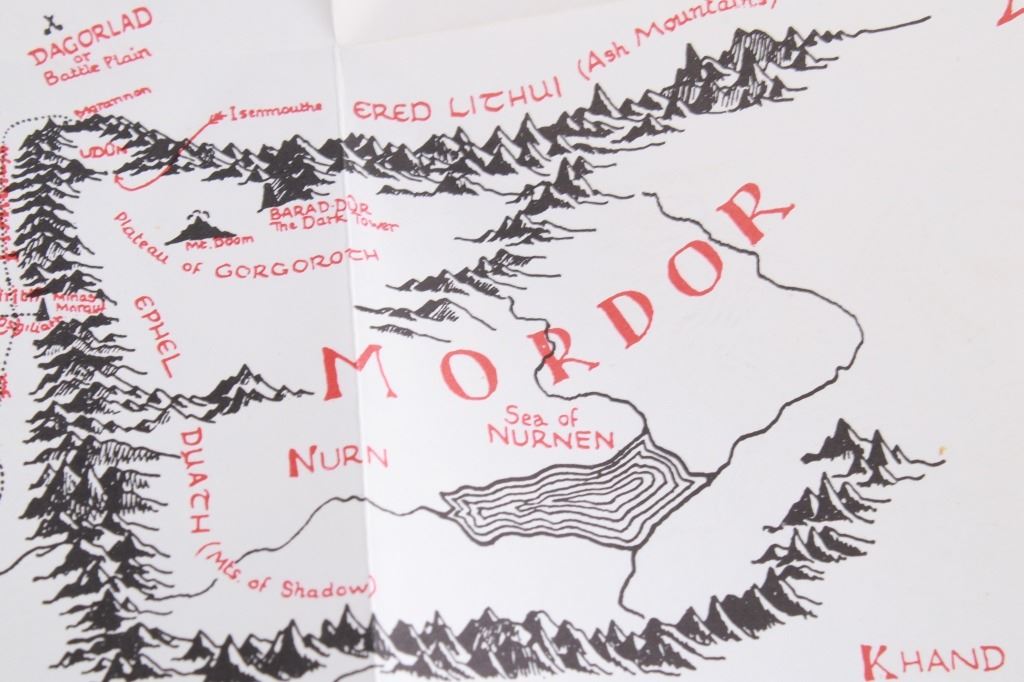 DAGORLAD
or
Battle Plain
ERED LITHUI (Ash Mountains)
Isenmouthe
UDÛN
BARAD-DÛR
The Dark Tower
Mt. Doom
Plateau
of GORGOROTH
MORDOR
Minas
Morgul
EPHEL
DUATH
(Mts. of Shadow)
Sea of
NURNEN
NURN
KHAND